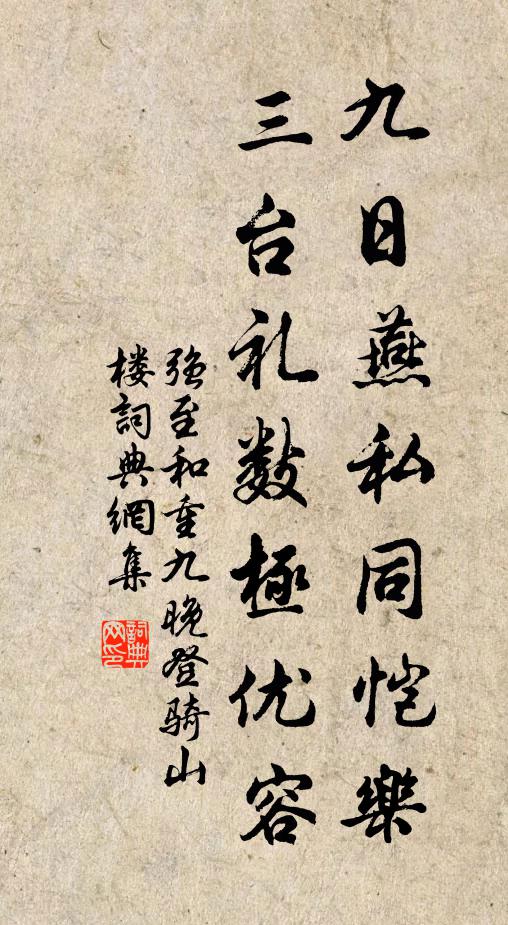 九日燕私同恺樂
三台礼数極优容
强至和重九晚登骑山
楼詞典網集
詞典网印